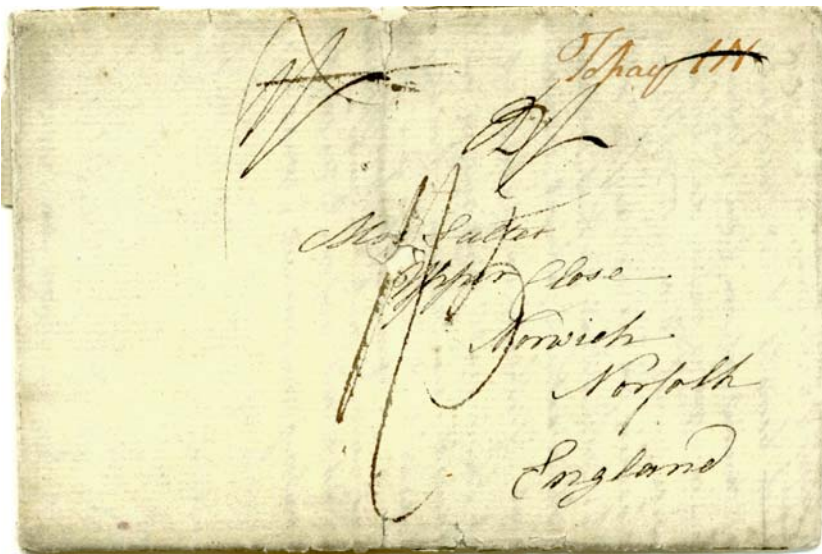 To pay 1N
Mrs Salter
Upper Close
Norwich
Norfolk
England